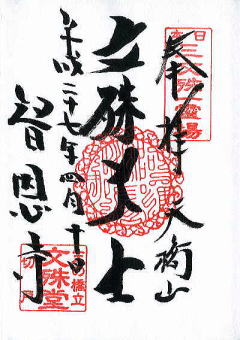 奉拝 天橋山
文殊大士
智恩寺
平成二十七年四月十日
日本三文殊霊場
天の橋立
文殊堂
切戸